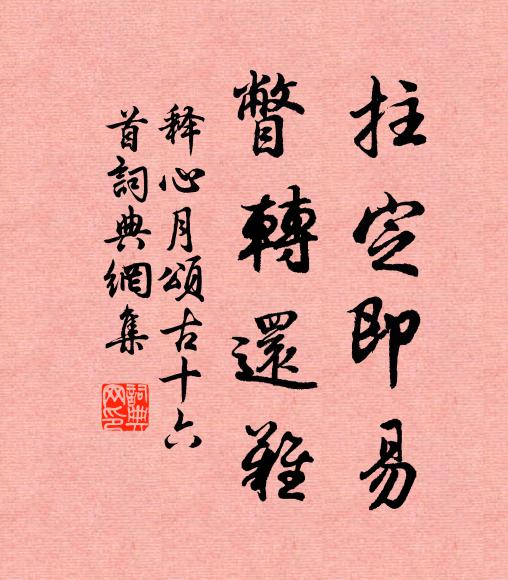 拄定即易
瞥轉還難
释心月頌古十六
首詞典網集
詞典
网印